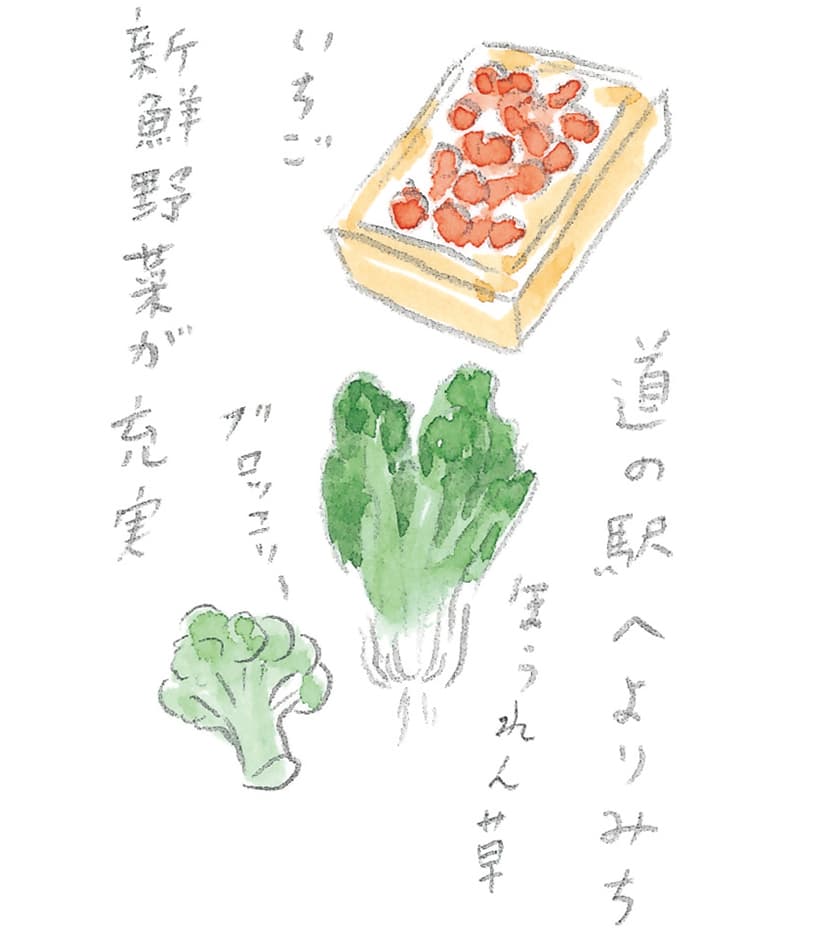 道の駅へよりみち
ほうれん草
いちご
ブロッコリー
新鮮野菜が充実